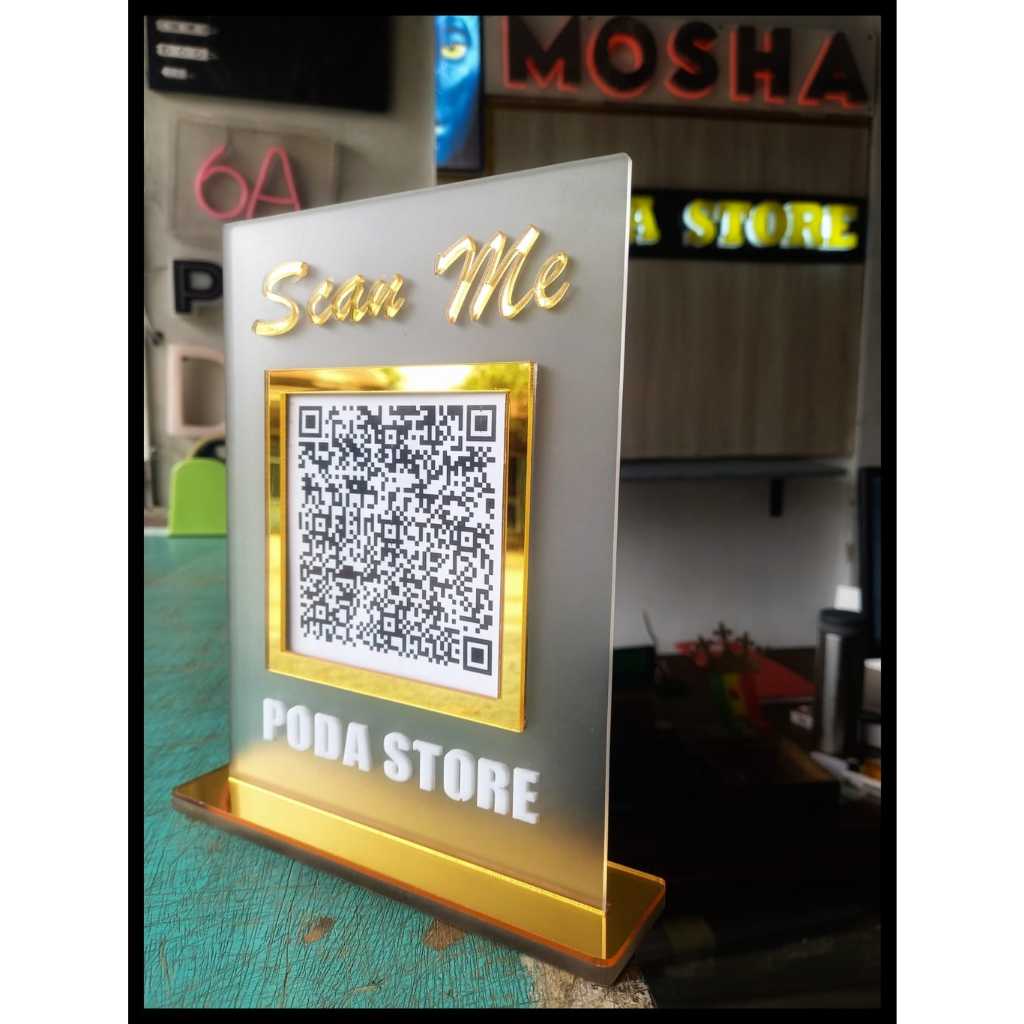 MOSHA
6A
A STORE
P
D
Scan Me
PODA STORE